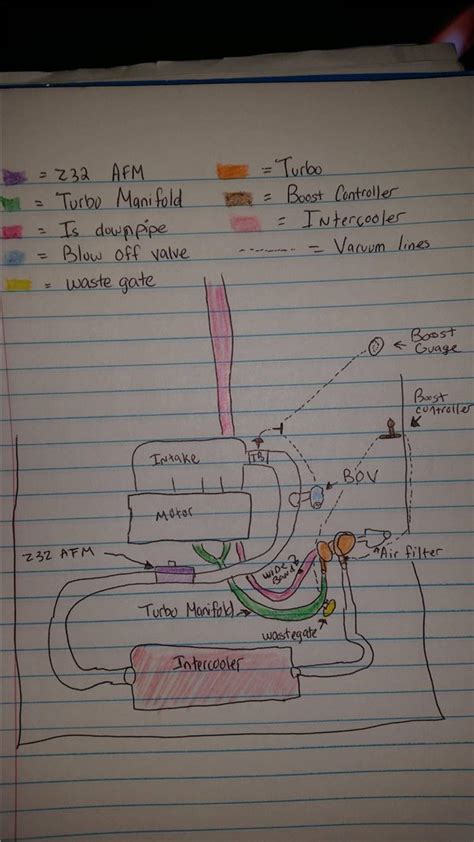 = Z32 AFM
= Turbo
= Turbo Manifold
= Boost Controller
= Is downpipe
= Intercooler
= Blow off valve
------ = Vacuum lines
= waste gate
Boost
Guage
Boost
controller
Intake
TB
BOV
Motor
Z32 AFM
wide
Band
Air filter
Turbo Manifold
wastegate
Intercooler